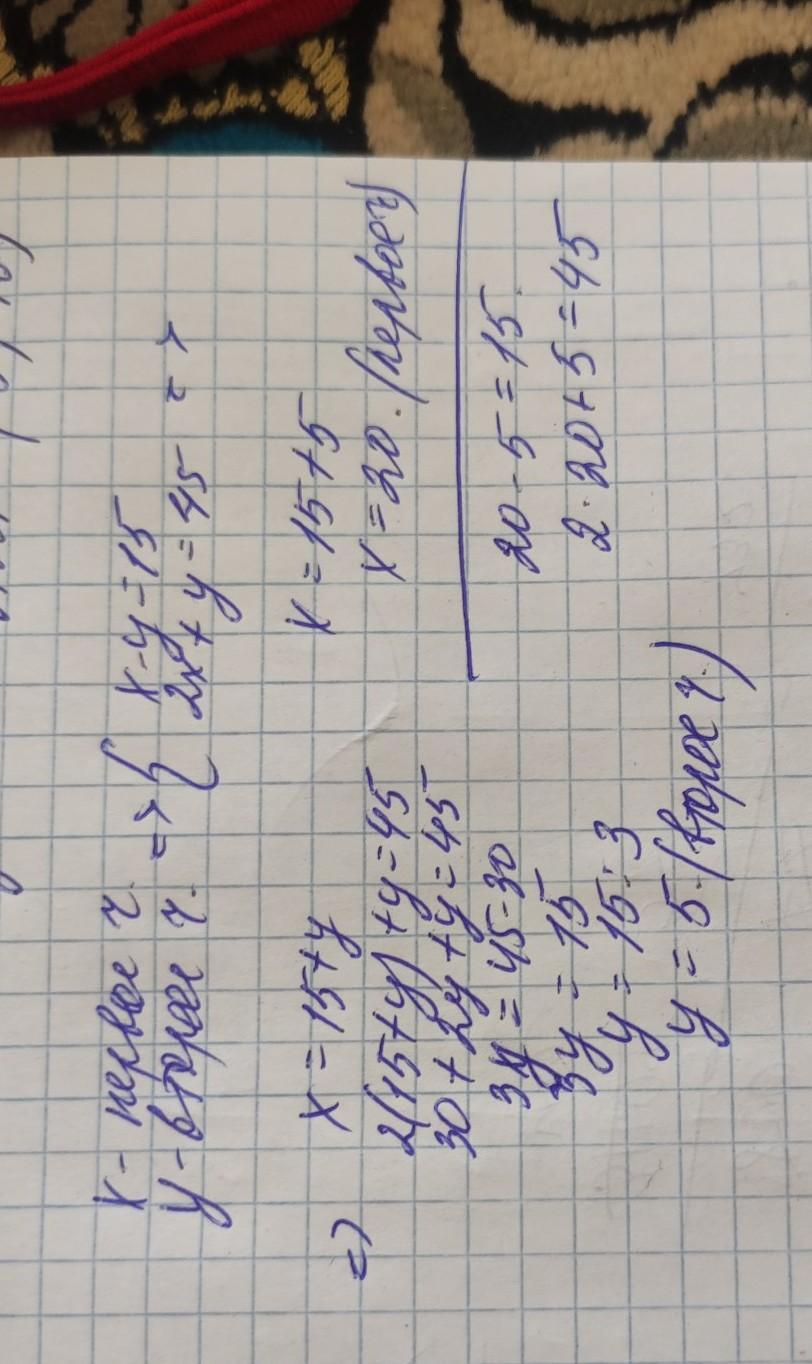 x - первое ч.
y - второе ч. => {
x - y = 15
2x + y = 45 =>
=> x = 15 + y
2(15 + y) + y = 45
30 + 2y + y = 45
3y = 45 - 30
3y = 15
y = 15 : 3
y = 5. (второе ч.)
x = 15 + 5
x = 20. (первое ч)
20 - 5 = 15.
2 · 20 + 5 = 45